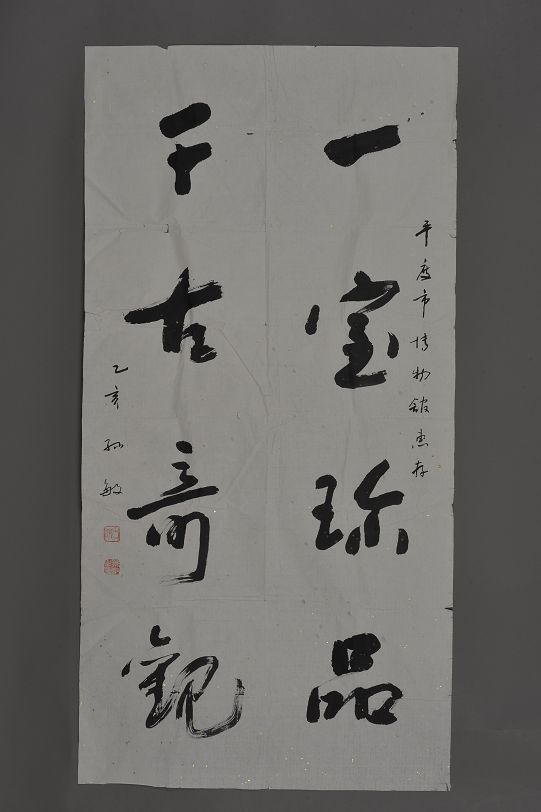 平度市博物館惠存
一室珍品
千古奇觀
乙亥 孙敏